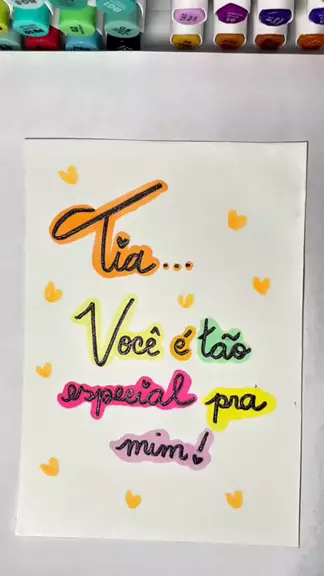 Tia...
Você é tão
especial pra
mim!